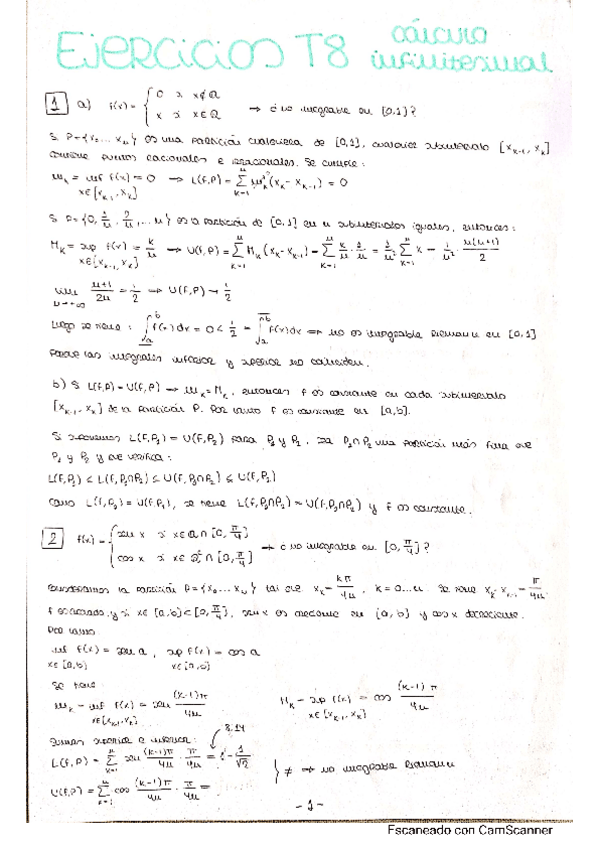 Ejercicios T8 cálculo infinitesimal
1 a) f(x) = { 0 si x∉Q
x si x∈Q → ¿no integrable en [0,1]?
Si P={x₀... xₙ} es una partición cualquiera de [0,1], cualquier subintervalo [xₖ₋₁, xₖ]
contiene puntos racionales e irracionales. Se cumple:
mₖ = inf f(x) = 0 → L(f,P) = Σ mₖ(xₖ - xₖ₋₁) = 0
x∈[xₖ₋₁, xₖ]
Si P={0, 1/n, 2/n, ... n} es la partición de [0,1] en n subintervalos iguales, entonces:
Mₖ = sup f(x) = k/n → U(f,P) = Σ Mₖ(xₖ - xₖ₋₁) = Σ k/n · 1/n = 1/n² Σ k = 1/n² · n(n+1)/2
x∈[xₖ₋₁, xₖ]
lim n+1/2n = 1/2 → U(f,P) → 1/2
n→∞
Luego se tiene: ∫ f(x)dx = 0 < 1/2 = ∫ f(x)dx → no es integrable Riemann en [0,1]
porque las integrales inferior y superior no coinciden.
b) Si L(f,P) = U(f,P) → mₖ = Mₖ, entonces f es constante en cada subintervalo
[xₖ₋₁, xₖ] de la partición P. Por tanto f es constante en [a,b].
Si suponemos L(f,P₁) = U(f,P₂) para P₁ y P₂, sea P₁∩P₂ una partición más fina que
P₁ y P₂ y que verifica:
L(f,P₁) ≤ L(f,P₁∩P₂) ≤ U(f,P₁∩P₂) ≤ U(f,P₂)
Como L(f,P₁) = U(f,P₂), se tiene L(f,P₁∩P₂) = U(f,P₁∩P₂) y f es constante.
2 f(x) = { sen x si x∈Q∩[0, π/4]
cos x si x∈ ∩[0, π/4] → ¿no integrable en [0, π/4]?
Consideramos la partición P={x₀...xₙ} tal que xₖ = kπ/4n, k=0...n. Se tiene xₖ - xₖ₋₁ = π/4n
f es acotada, y si x∈[a,b]⊂[0, π/4], sen x es creciente en [a,b] y cos x decreciente.
Por tanto:
inf f(x) = sen a, sup f(x) = cos a
x∈[a,b] x∈[a,b]
Se tiene
mₖ = inf f(x) = sen (k-1)π/4n Mₖ = sup f(x) = cos (k-1)π/4n
x∈[xₖ₋₁, xₖ] x∈[xₖ₋₁, xₖ]
Sumas superior e inferior: 8.14
L(f,P) = Σ sen (k-1)π/4n · π/4n = 1 - 1/√2
U(f,P) = Σ cos (k-1)π/4n · π/4n =
} ≠ → no integrable Riemann
-1-
Escaneado con CamScanner